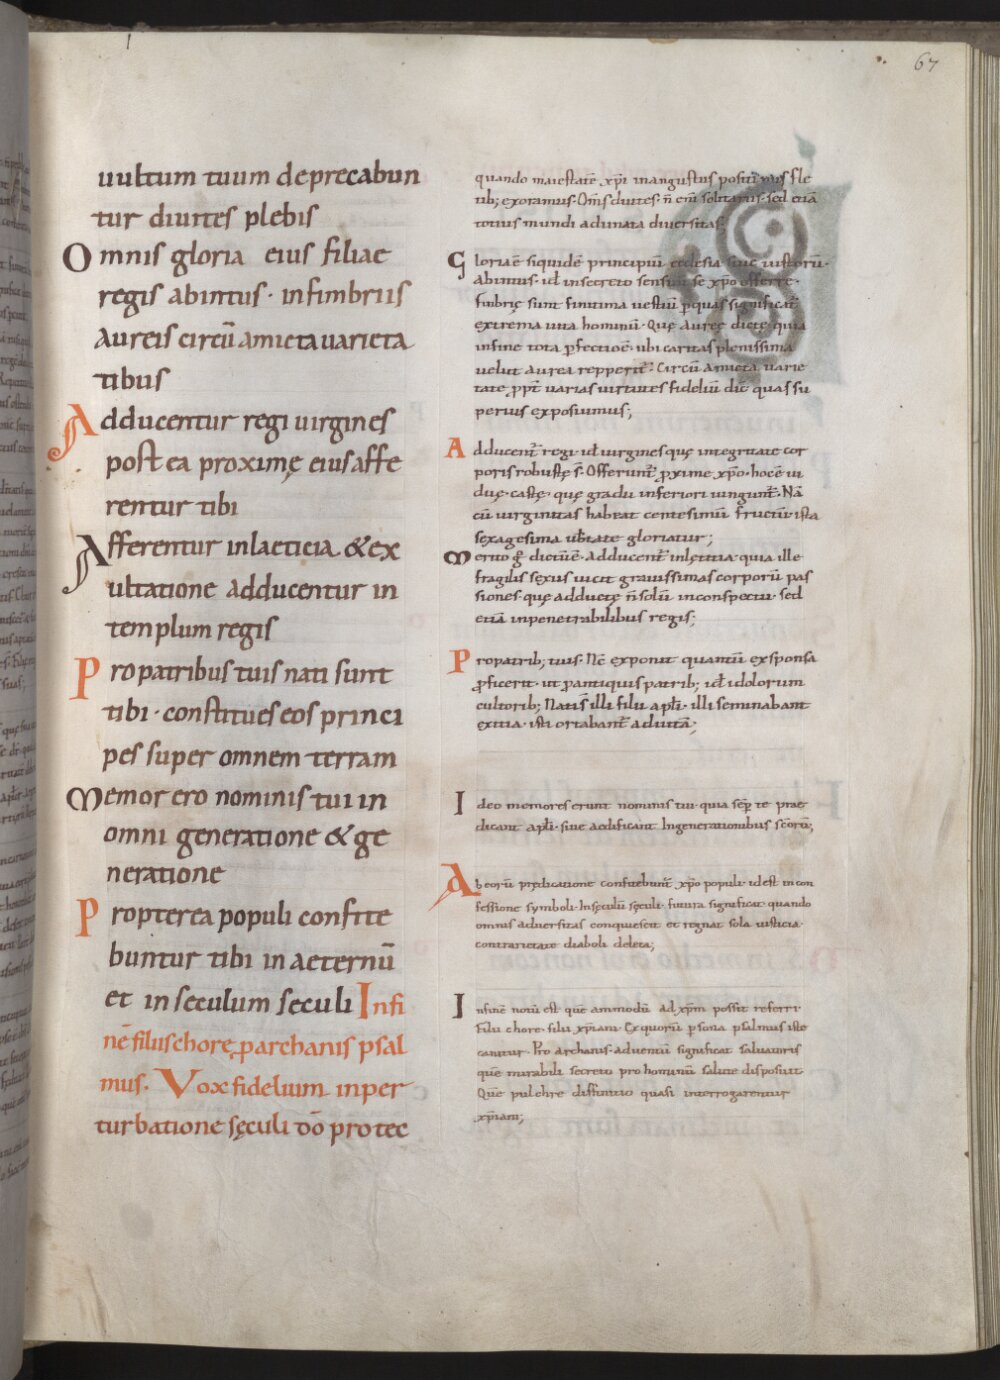 67
uultum tuum deprecabun
tur diuites plebis
Omnis gloria eius filiae
regis abintus · infimbriis
aureis circū amicta uarieta
tibus
Adducentur regi uirgines
post ea proximę eius affe
rentur tibi
Afferentur inlaeticia & ex
ultatione adducentur in
templum regis
Propatribus tuis nati sunt
tibi · constitues eos princi
pes super omnem terram
Memor ero nominis tui in
omni generatione & ge
neratione
Propterea populi confite
buntur tibi in aeternū
et in seculum seculi Infi
nē filiis chore ꝓ archanis psal
mus. Vox fidelium inper
turbatione sęculi dō protec
quando maiestatē xp̄i inangustiis positi fle
tib; exoramus · Om̄s diuites · n̄ em̄ solitarius · sed etiā
totius mundi adunata diuersitas
Gloria ē siquidē principiū ecclesia siue iustorū ·
abintus · id insecreto sensim se xp̄o offerre ·
fimbrię sunt finitima uestiū ꝑquas significat̄
extrema uita hominū · Quę auree dictę quia
infine tota ꝑfectio ē · ubi caritas plenissima
uelut aurea repperit̄ · Circū amicta uarie
tate · ꝓpt̄ uarias uirtutes fideliū dic̄ quas su
perius exposuimus;
Adducent̄ regi · id uirgines quę integritate cor
poris robustę s̄ · Offerunt̄ ꝓxime xp̄o · hoc ē ui
duę · castę · quę gradu inferiori iungunt̄ · Nā
cū uirginitas habeat centesimū fructū · ista
sexagesima ubertate gloriatur;
Merito ḡ dictū ē · Adducent̄ inlętitia · quia ille
fragilis sexus uicit grauissimas corporū pas
siones · quę adductę n̄ solū inconspectu · sed
etiā inpenetrabilibus regis;
Propatrib; tuis · Nc̄ exponit quantū ex sponsa
ꝓficerit · ut ꝓ antiquis patrib; id idolorum
cultorib; Nati s̄ illi filii apl̄i · illi seminabant
exitia · isti ortabant̄ ad uitā;
Ideo memores erunt nominis tui · quia sēp te prae
dicant apl̄i · siue aedificant Ingenerationibus sc̄orū;
Ab eorū prędicatione confitebunt̄ xp̄o populi · idest incon
fessione symboli · Insęculū sęculi · futura significat · quando
omnis aduersitas conquiescit et regnat sola iusticia ·
contrarietate diaboli deleta;
Infinē notū est quē ammodū ad xp̄m possit referri ·
Filii chore · filii xp̄iani · Ex quorū ꝑsona psalmus iste
canitur · Pro archanis · aduentū significat saluatoris
quē mirabili secreto pro hominū salute disposuit
Quē pulchre diffinitio quasi interrogarentur
xp̄iani;